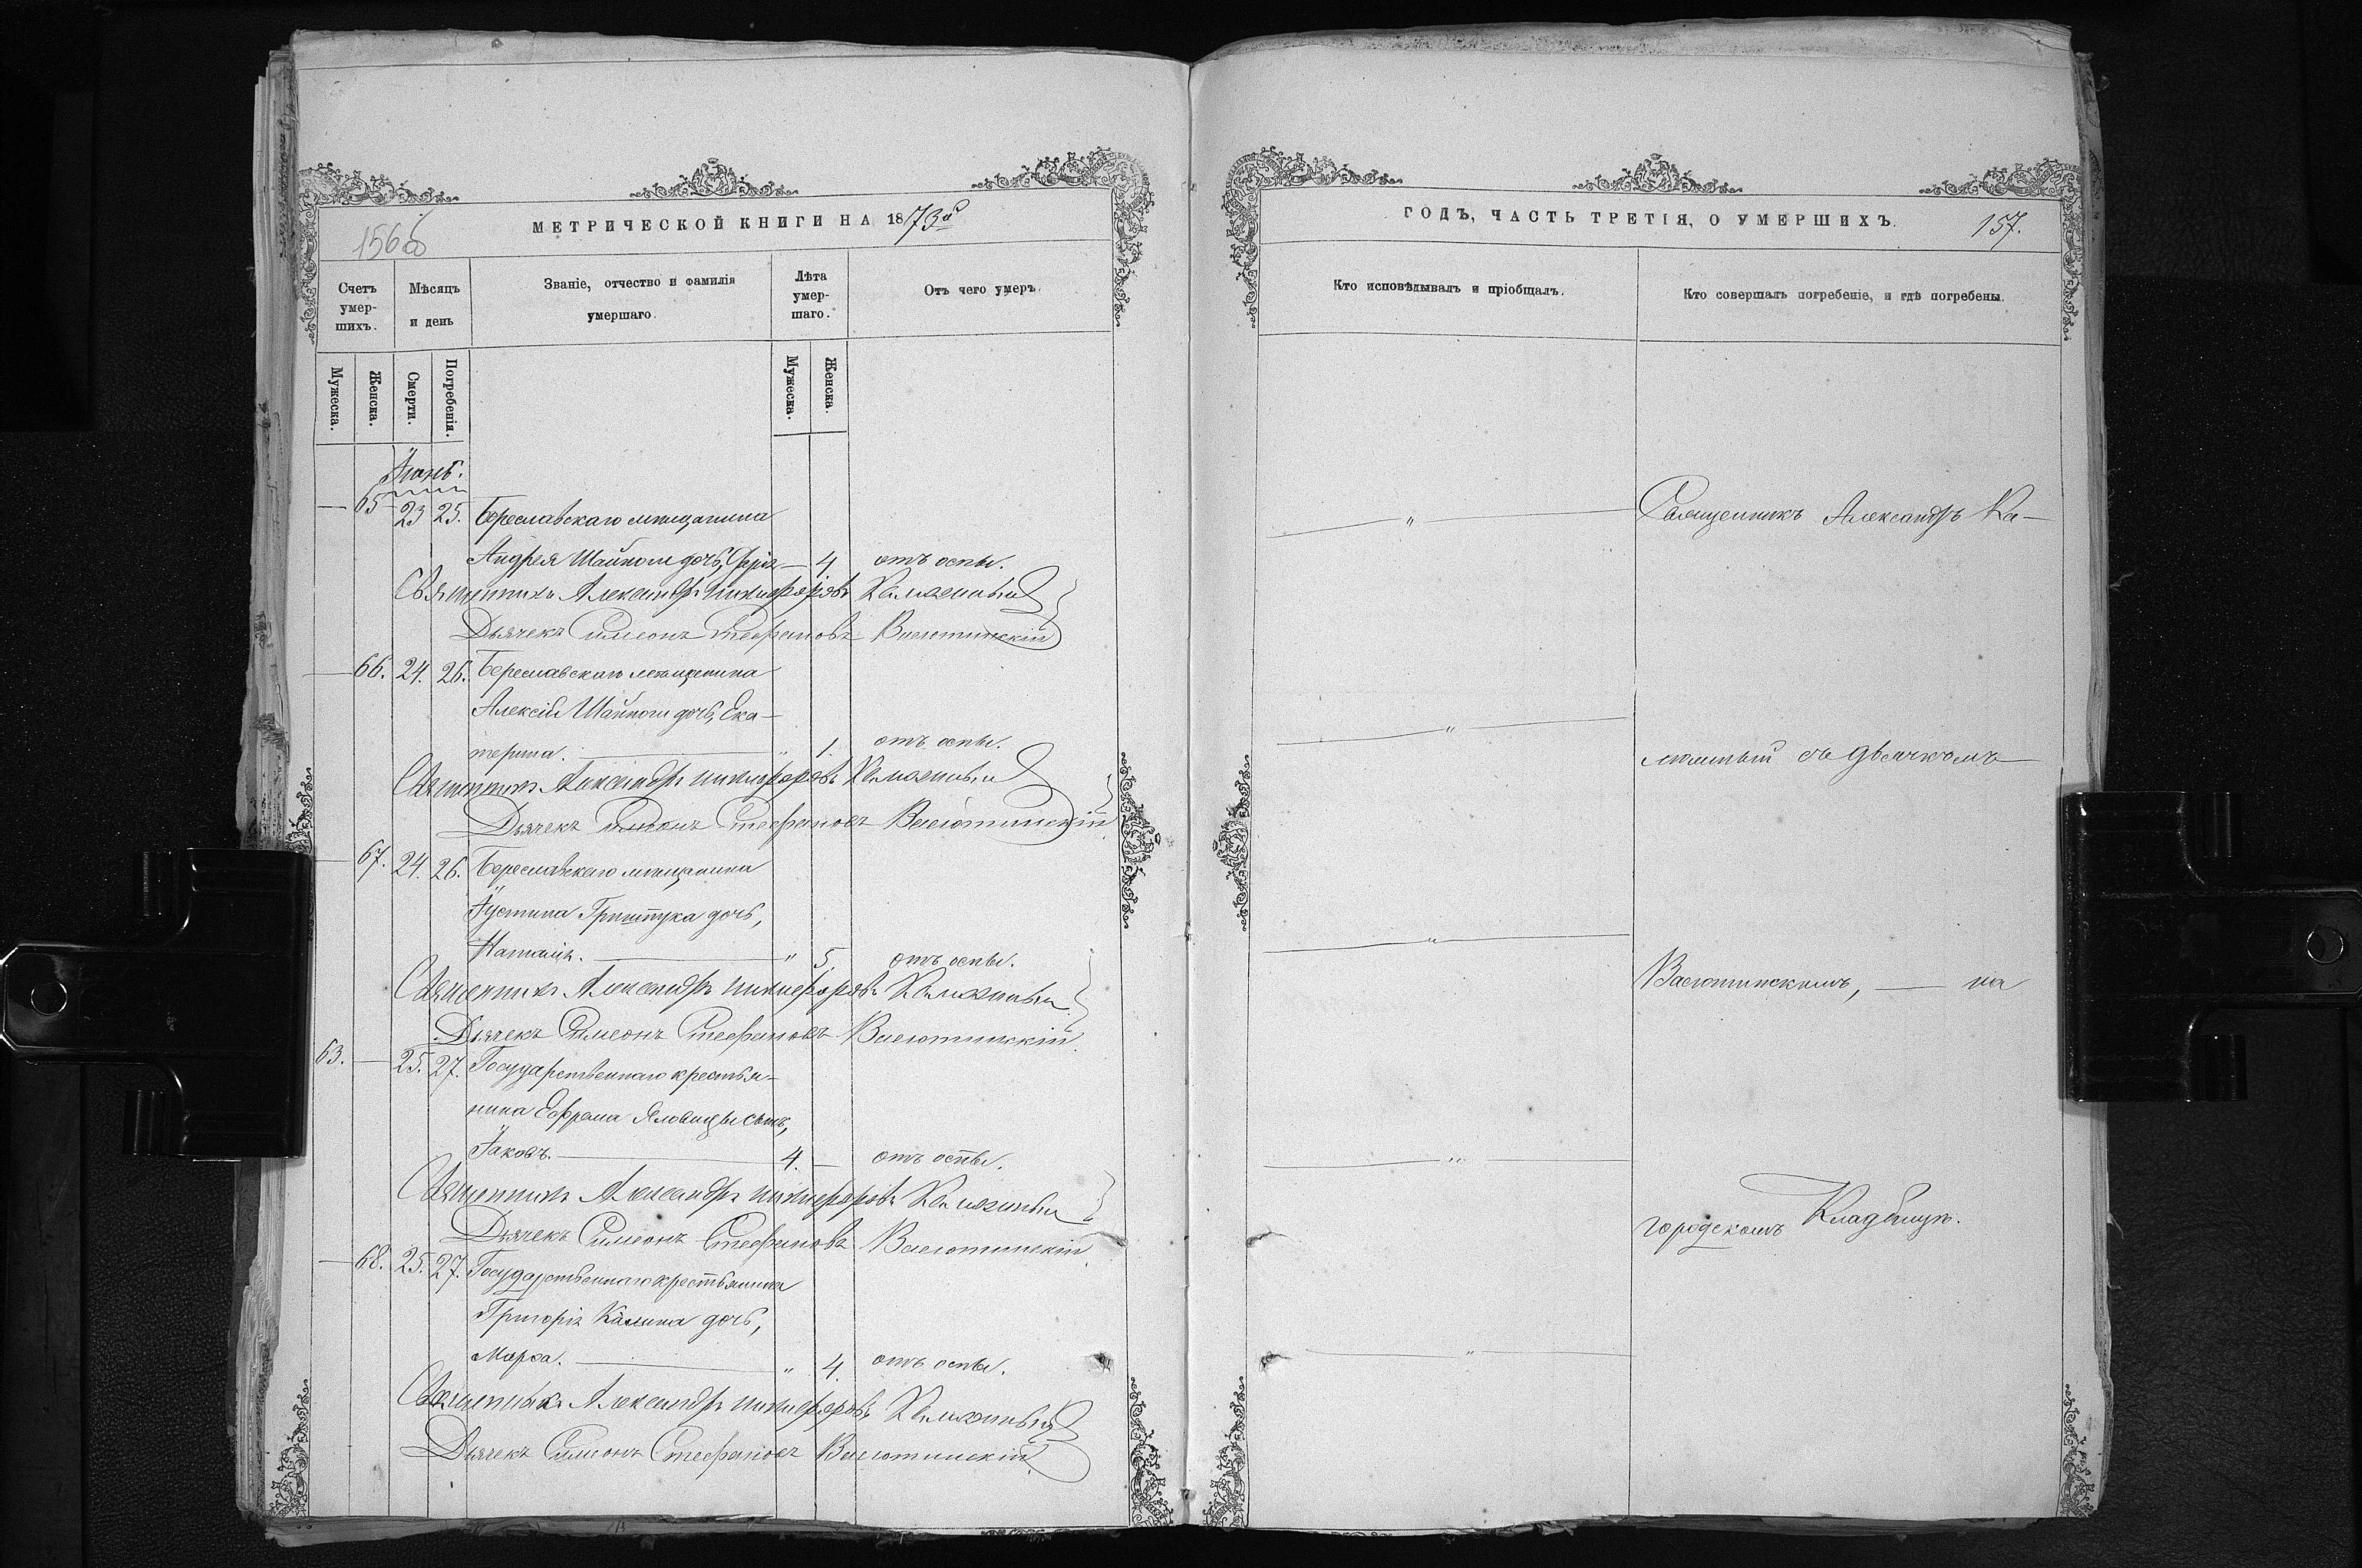 МЕТРИЧЕСКОЙ КНИГИ НА 1873й
156об
Счетъ умершихъ.
Мѣсяцъ и день
Званіе, отчество и фамилія умершаго.
Лѣта умершаго.
Отъ чего умеръ.
Мужеска.
Женска.
Смерти.
Погребенія.
Мужеска.
Женска.
Іюнь.
— 65 23 25. Береславскаго мѣщанина
Андрея Шайноги дочь, — 4 отъ оспы.
Священникъ Александръ Никифоровъ
Дьячекъ Симеонъ Стефановъ Васютинскій
— 66. 24. 26. Береславскаго мѣщанина
Алексія Шайноги дочь, Ека-
терина. — " 1. отъ оспы.
Священникъ Александръ Никифоровъ
Дьячекъ Симеонъ Стефановъ Васютинскій
— 67. 24. 26. Береславскаго мѣщанина
Іустина Гриштука дочь,
Наталія. — " 5. отъ оспы.
Священникъ Александръ Никифоровъ
Дьячекъ Симеонъ Стефановъ Васютинскій
63. — 25. 27. Государственнаго крестья-
нина Ефрема Яловицы сынъ,
Іаковъ. — 4. — отъ оспы.
Священникъ Александръ Никифоровъ
Дьячекъ Симеонъ Стефановъ Васютинскій
— 68. 25. 27. Государственнаго крестьянина
Григорія Калина дочь,
Марѳа. — " 4. отъ оспы.
Священникъ Александръ Никифоровъ
Дьячекъ Симеонъ Стефановъ Васютинскій
ГОДЪ, ЧАСТЬ ТРЕТІЯ, О УМЕРШИХЪ.
157.
Кто исповѣдывалъ и пріобщалъ.
Кто совершалъ погребеніе, и гдѣ погребены.
— " — Священникъ Александръ Ка-
— " — съ дьячкомъ
— " — Васютинскимъ, — на
— " — городскомъ Кладбищѣ.
— " —